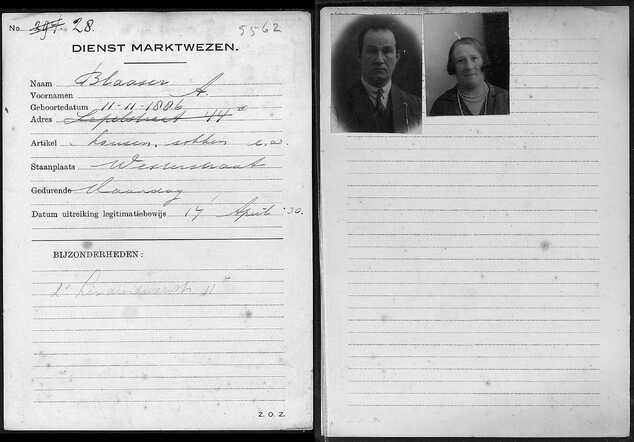 No. 397. 28. 5562
DIENST MARKTWEZEN.
Naam Blaaser
Voornamen A.
Geboortedatum 11-11-1886
Adres Lepelstraat 44
Artikel kousen, sokken e.a.
Staanplaats Westerstraat
Gedurende Maandag
Datum uitreiking legitimatiebewijs 17 April '30.
BIJZONDERHEDEN:
2e 11
Z.O.Z.